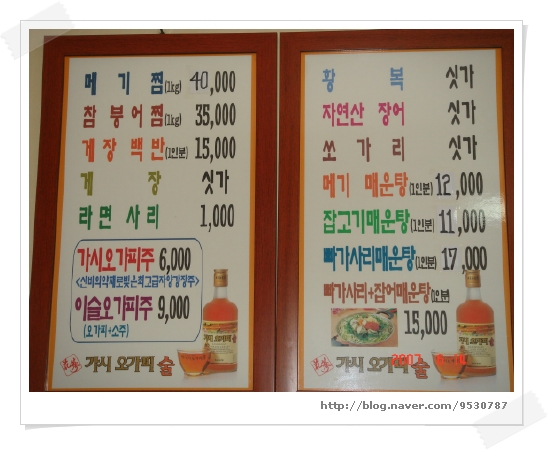 메기찜(1kg) 40,000
참붕어찜(1kg) 35,000
게장백반(1인분) 15,000
게장 싯가
라면사리 1,000
가시오가피주 6,000
<신비의약재로빚은최고급자양강장주>
이슬오가피주 9,000
(오가피+소주)
가시 오가피 술
황복 싯가
자연산 장어 싯가
쏘가리 싯가
메기 매운탕(1인분) 12,000
잡고기매운탕(1인분) 11,000
빠가사리매운탕(1인분) 17,000
빠가사리+잡어매운탕(1인분
15,000
가시 오가피 술
http://blog.naver.com/9530787